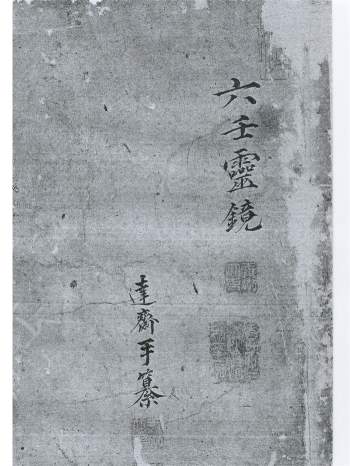 六壬靈鏡
達齋手纂